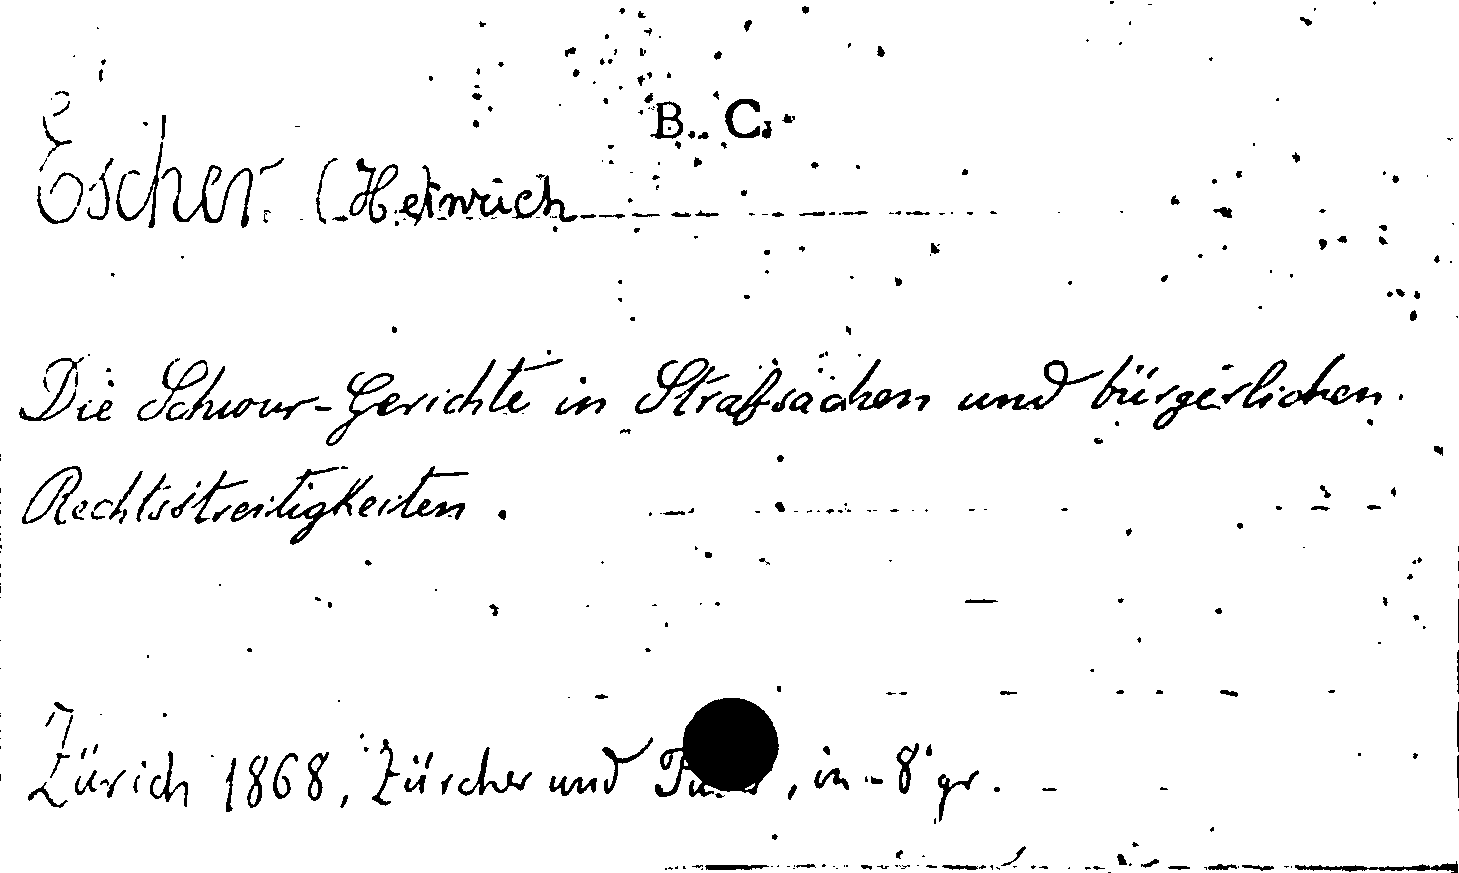 B. C.
Escher. (Heinrich
Die Schwur-Gerichte in Strafsachen und bürgerlichen
Rechtsstreitigkeiten.
Zürich 1868, Zürcher und , in-8° gr.